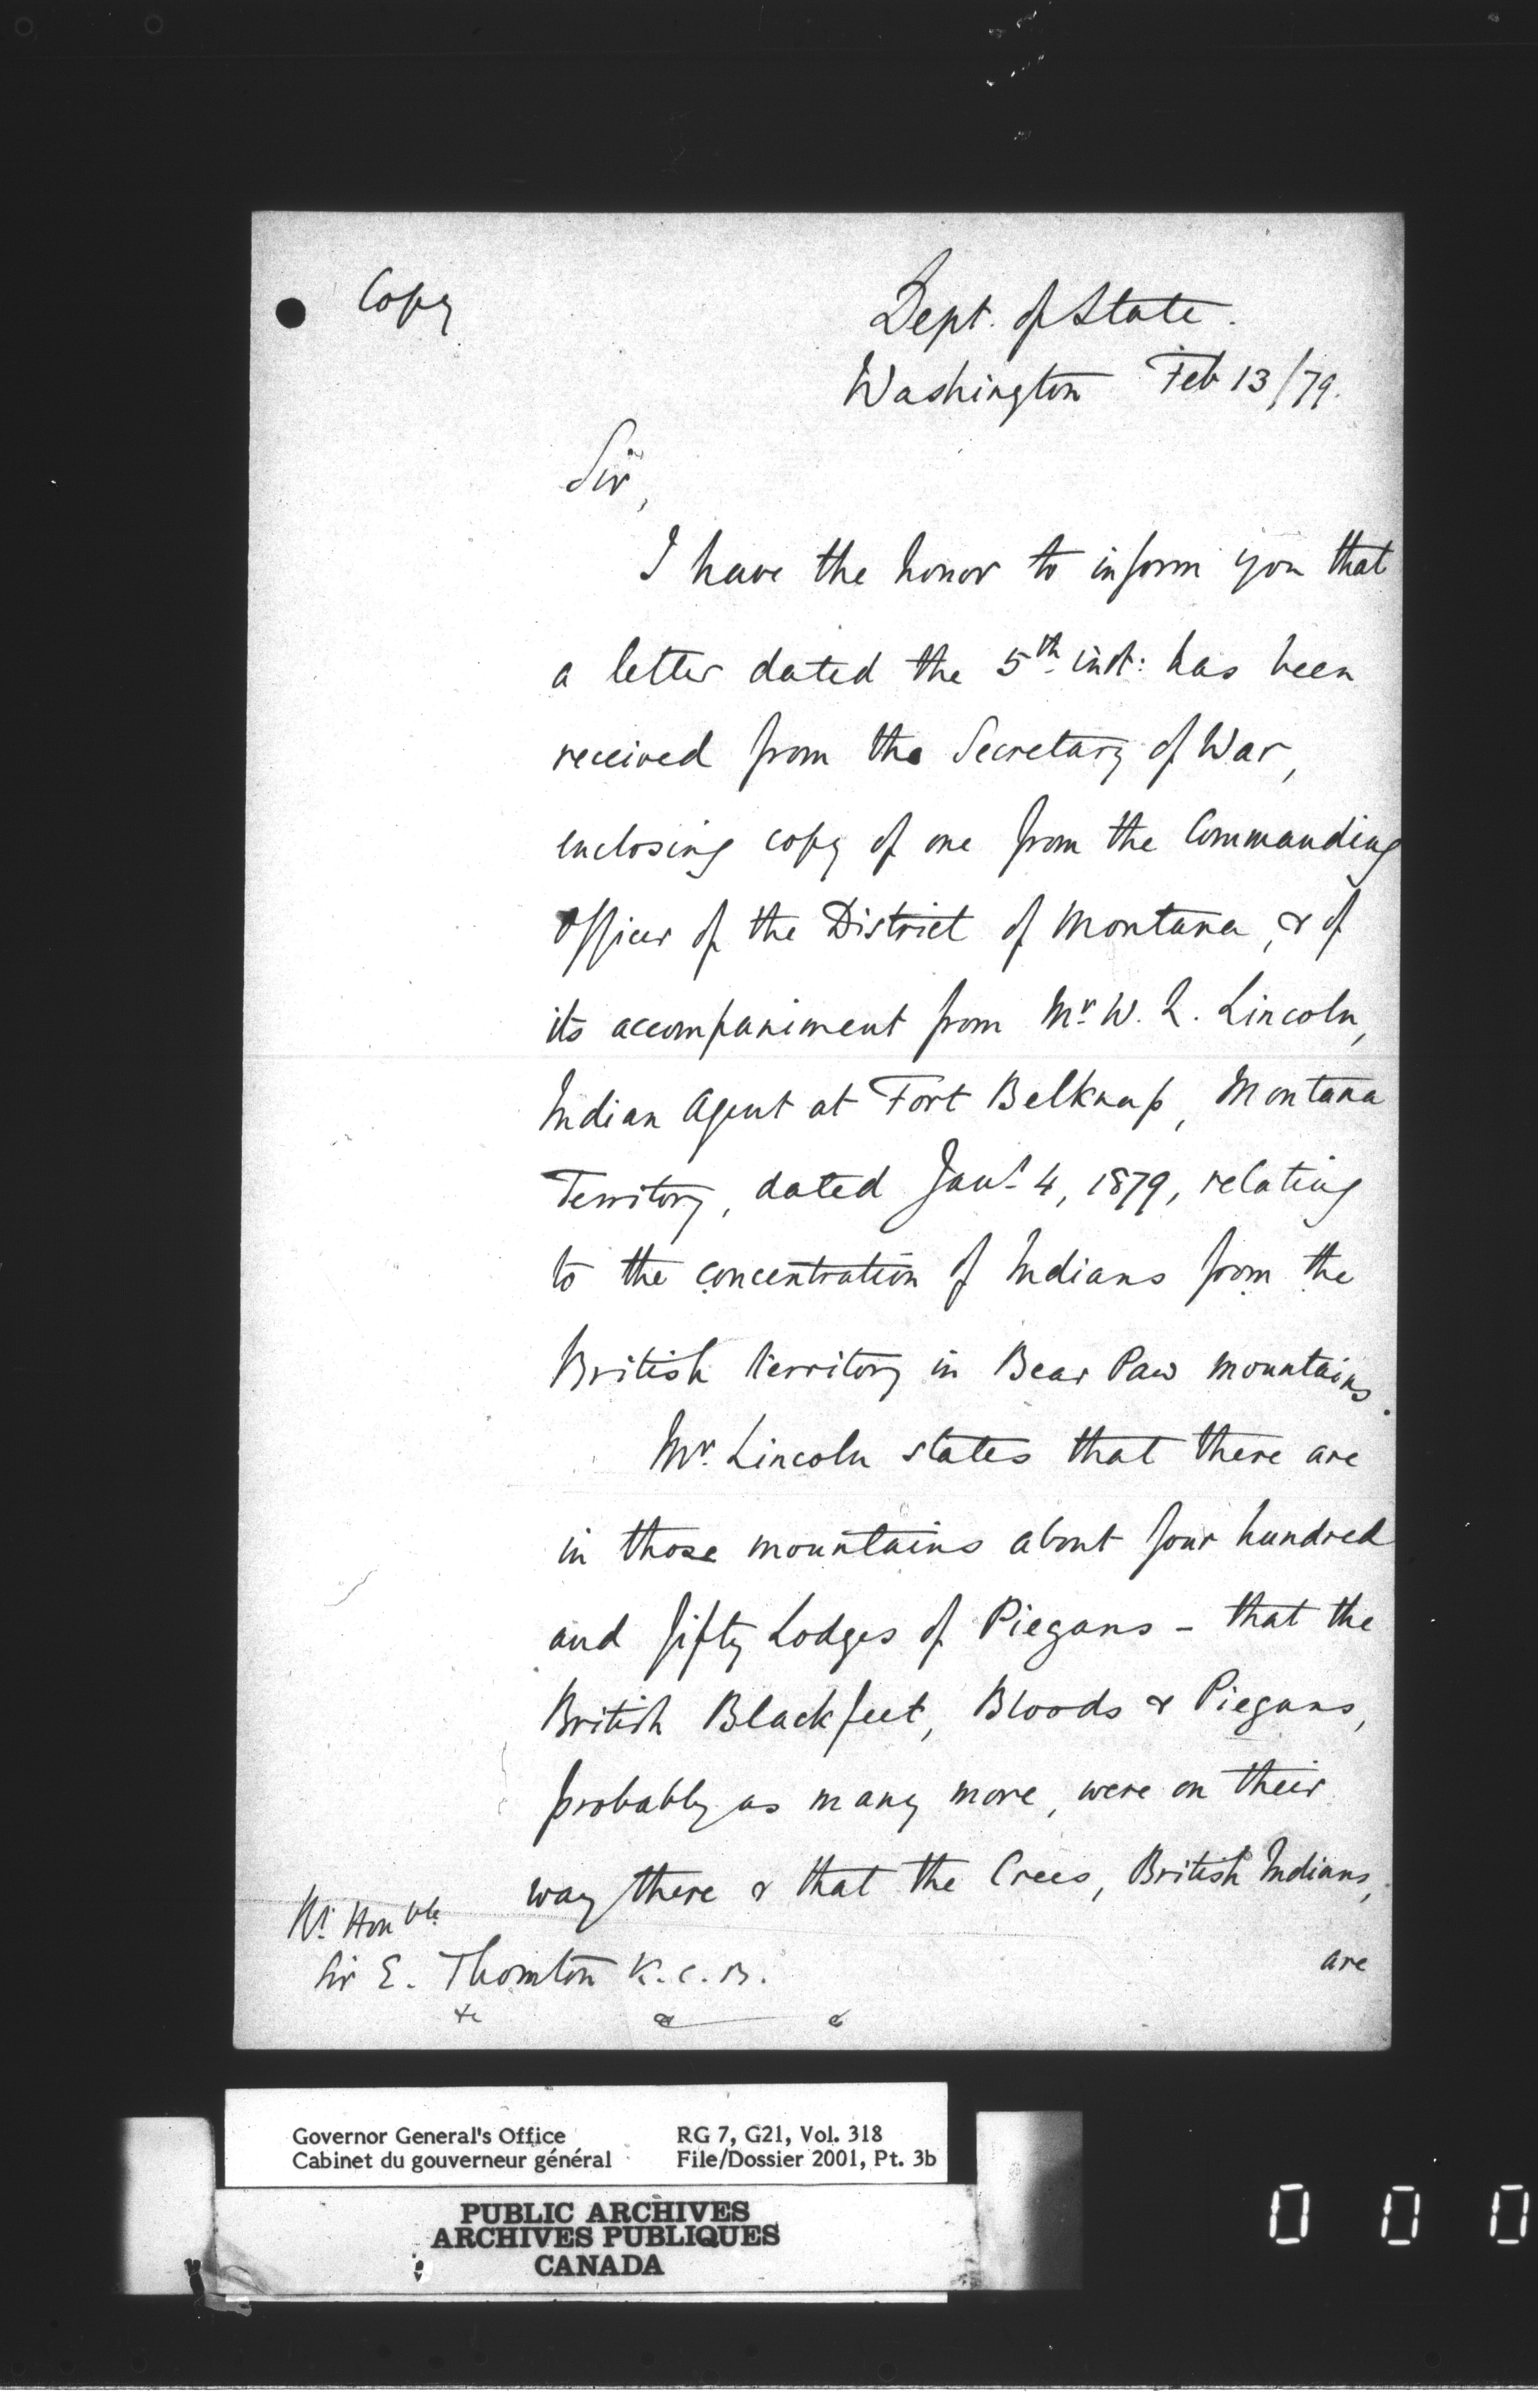 Copy
Dept. of State.
Washington Feb 13/79.
Sir,
I have the honor to inform you that
a letter dated the 5th inst: has been
received from the Secretary of War,
enclosing copy of one from the Commanding
Officer of the District of Montana, & of
its accompaniment from Mr. W. L. Lincoln,
Indian Agent at Fort Belknap, Montana
Territory, dated Jany 4, 1879, relating
to the concentration of Indians from the
British territory in Bear Paw mountains.
Mr. Lincoln states that there are
in those mountains about four hundred
and fifty Lodges of Piegans - that the
British Blackfeet, Bloods & Piegans,
probably as many more, were on their
way there & that the Crees, British Indians,
are
Rt Honble
Sir E. Thornton K.C.B.
&c &c &c
Governor General's Office
Cabinet du gouverneur général
RG 7, G21, Vol. 318
File/Dossier 2001, Pt. 3b
PUBLIC ARCHIVES
ARCHIVES PUBLIQUES
CANADA
0 0 0